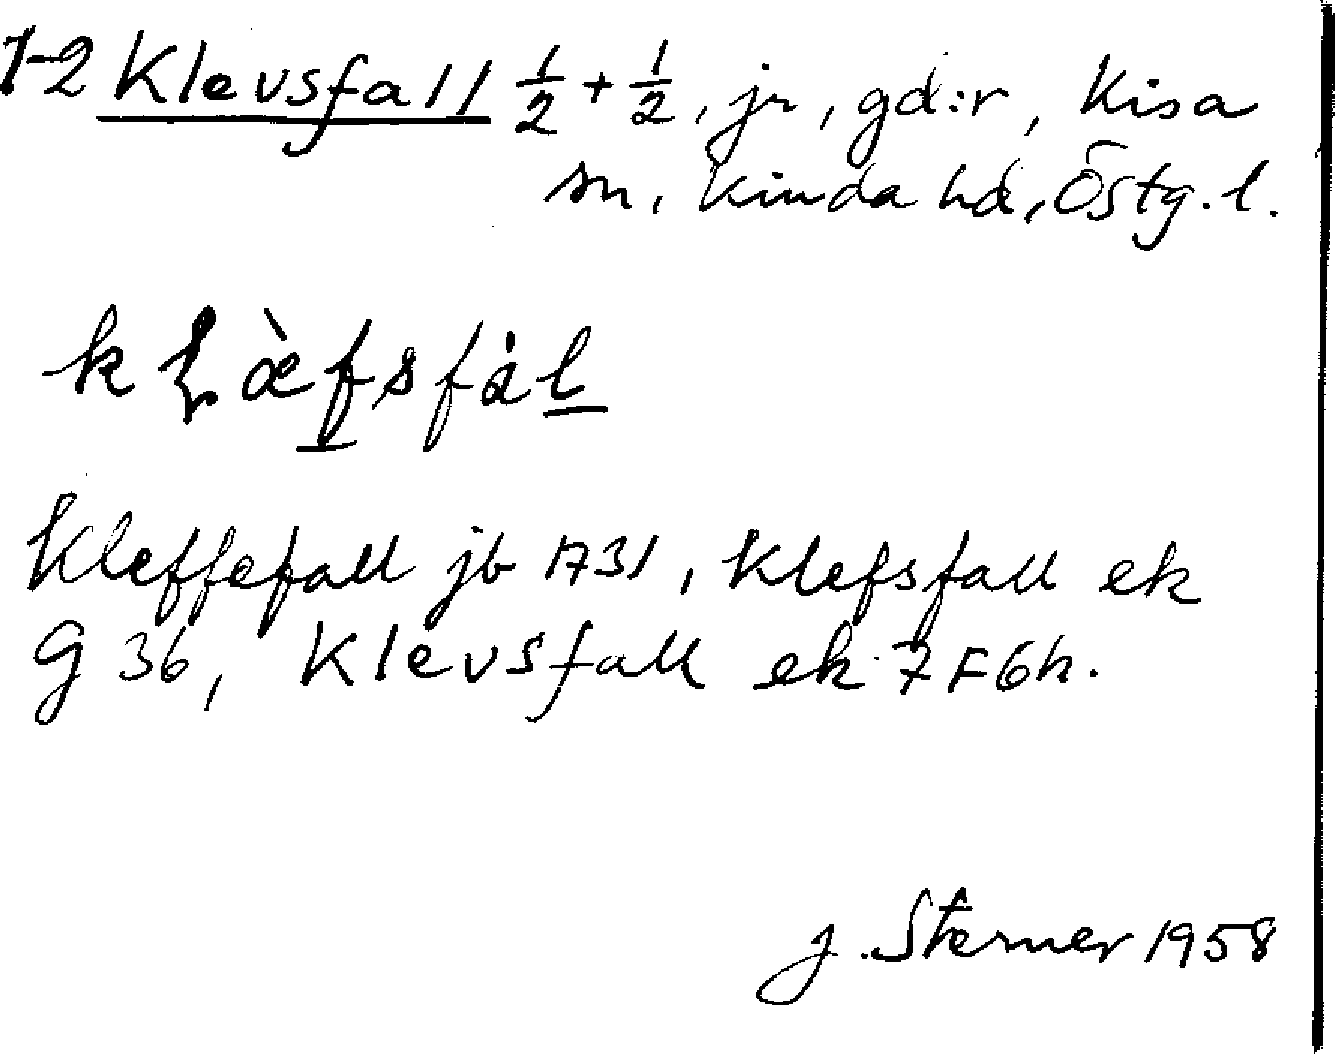 1-2 Klevsfall ½ + ½, jr, gd:r, Kisa
sn, Kinda hd, Östg. l.
kɭæ̀fsfȧl
Kleffefall jb 1731, Klefsfall ek
G 36, Klevsfall ek 7F6h.
J. Sterner 1958